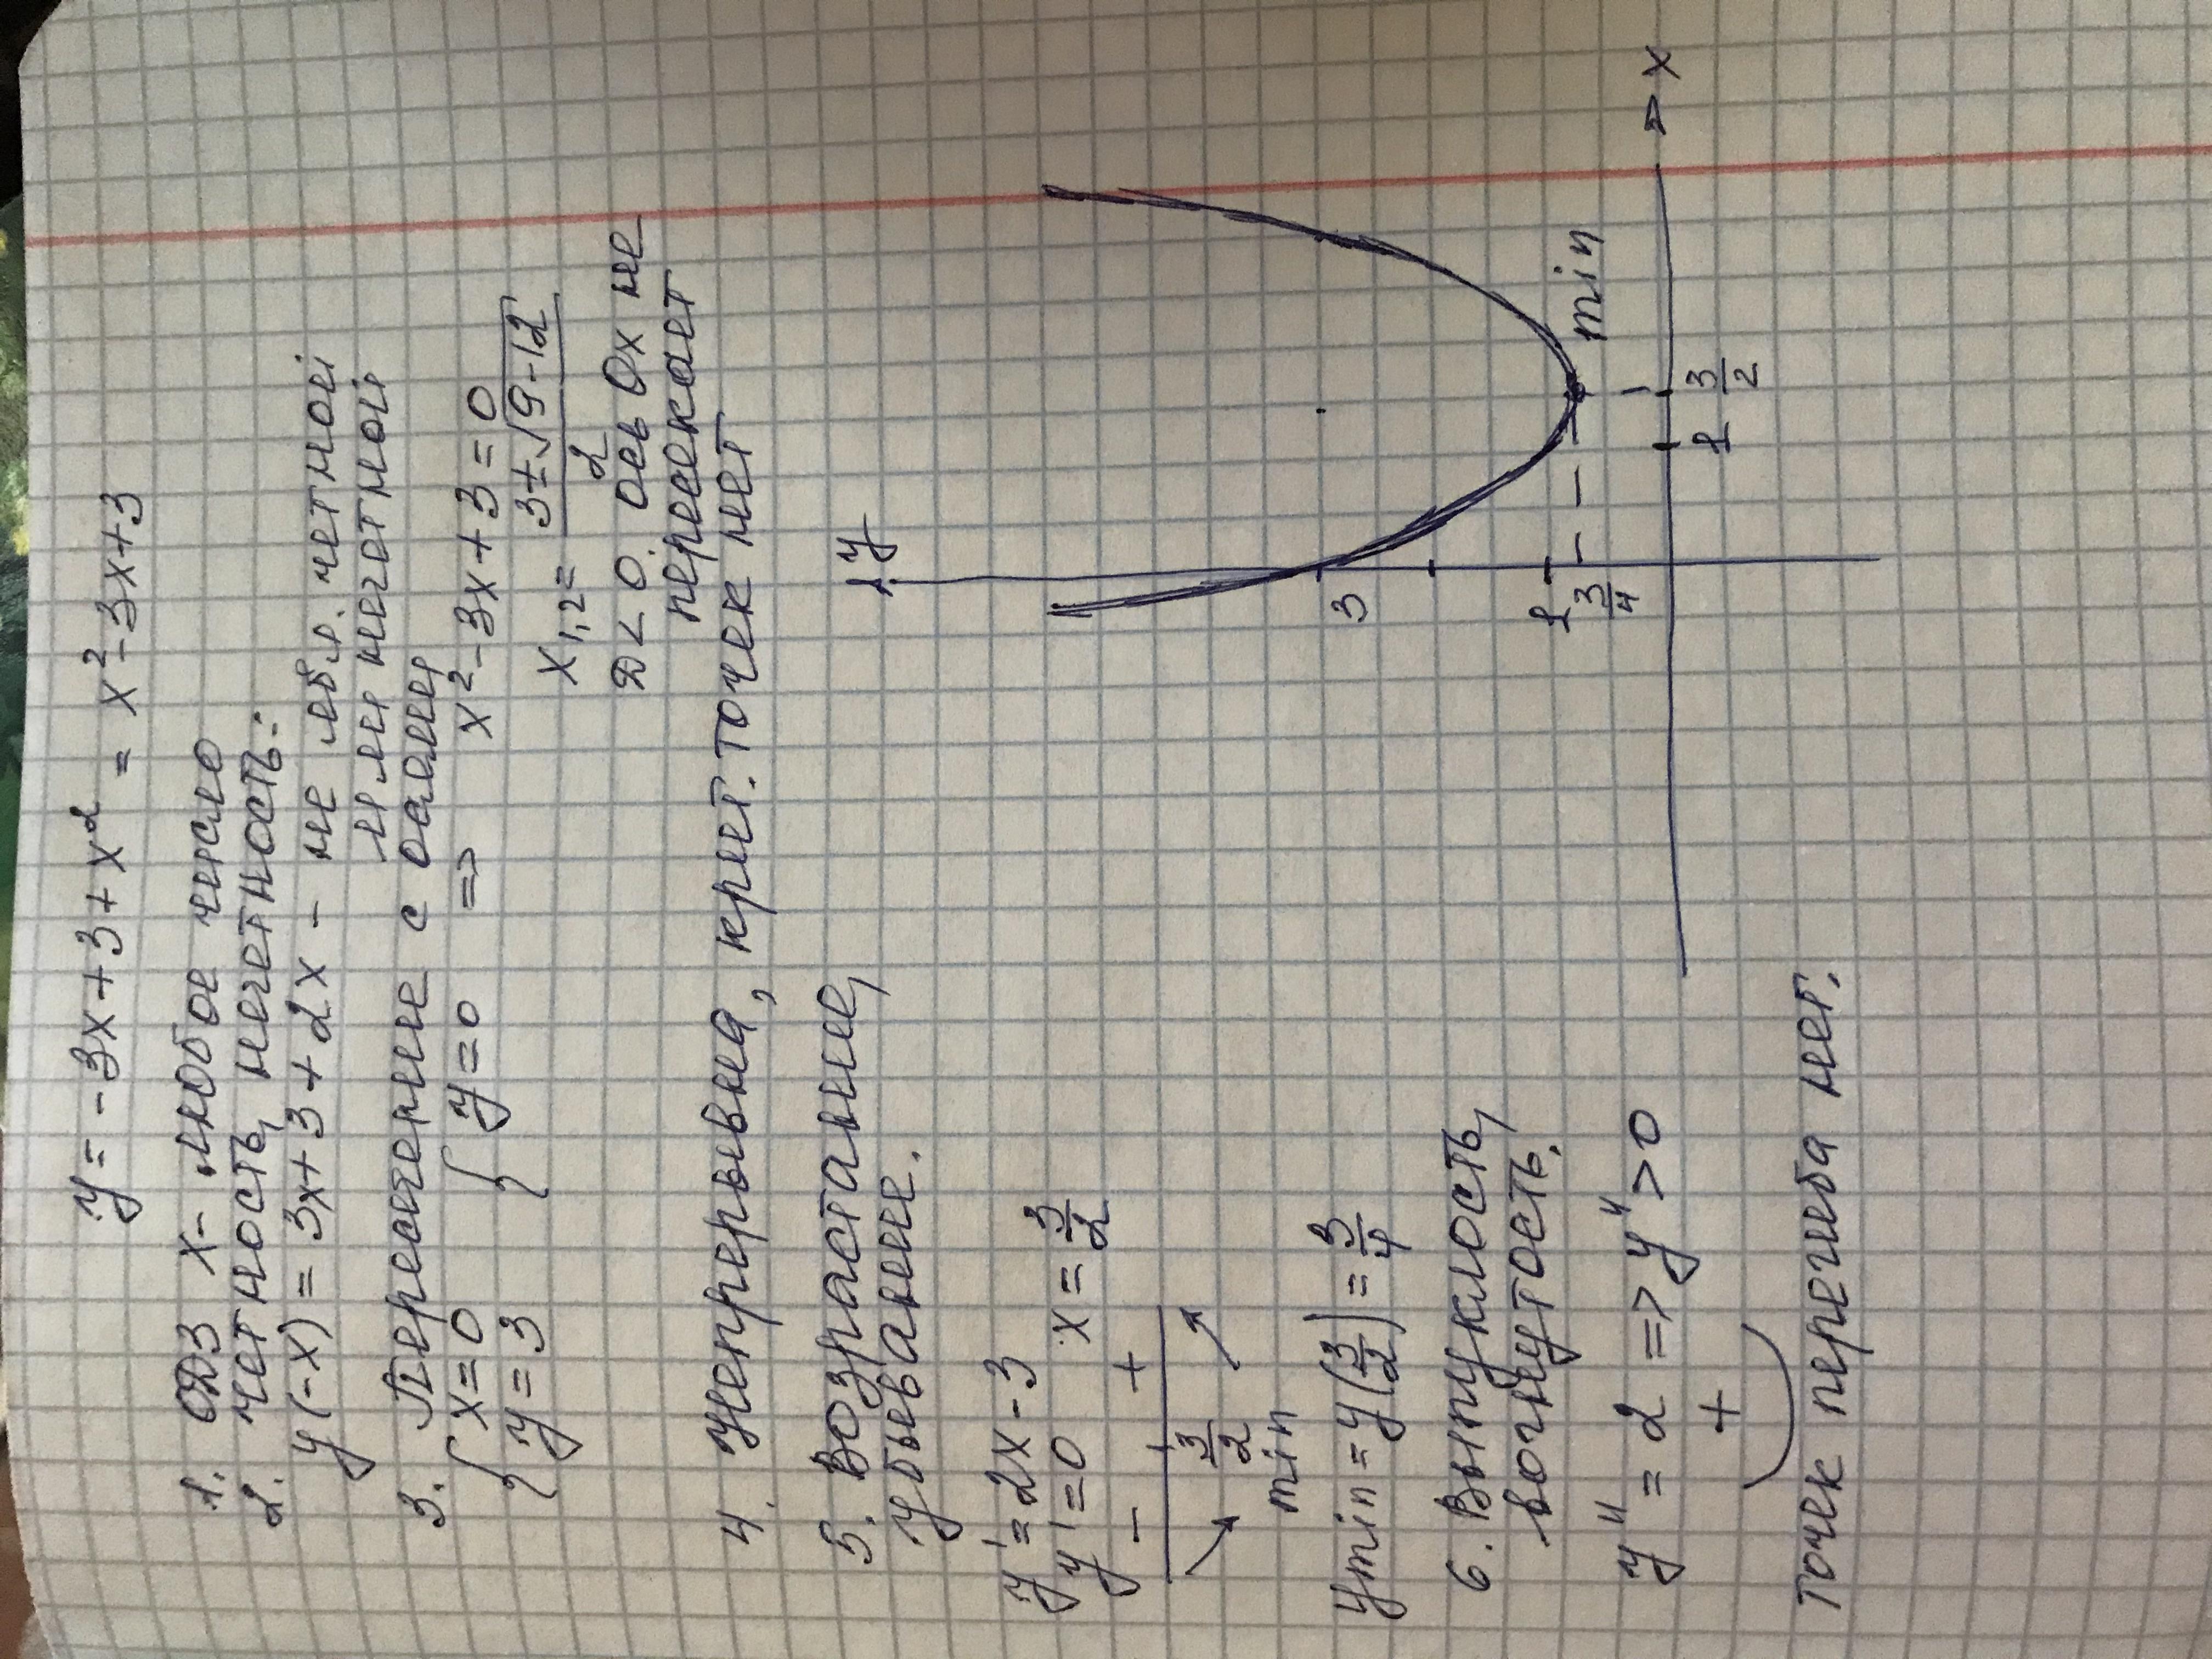 y = -3x + 3 + x² = x² - 3x + 3
1. ОДЗ x - любое число
2. четность, нечетность:
y(-x) = 3x + 3 + 2x - не явл. четной
или нечетной
3. Пересечение с осями
{ x = 0 { y = 0 => x² - 3x + 3 = 0
{ y = 3
x₁,₂ = (3 ± √(9 - 12)) / 2
D < 0. ось Ox не
пересекает
4. Непрерывна, крит. точек нет
5. Возрастание,
убывание.
y' = 2x - 3
y' = 0 x = 3/2
- +
3/2
min
ymin = y(3/2) = 3/4
6. Выпуклость,
вогнутость.
y'' = 2 => y'' > 0
+
Точек перегиба нет.
y
3
1
3/4
min
1 3/2
x